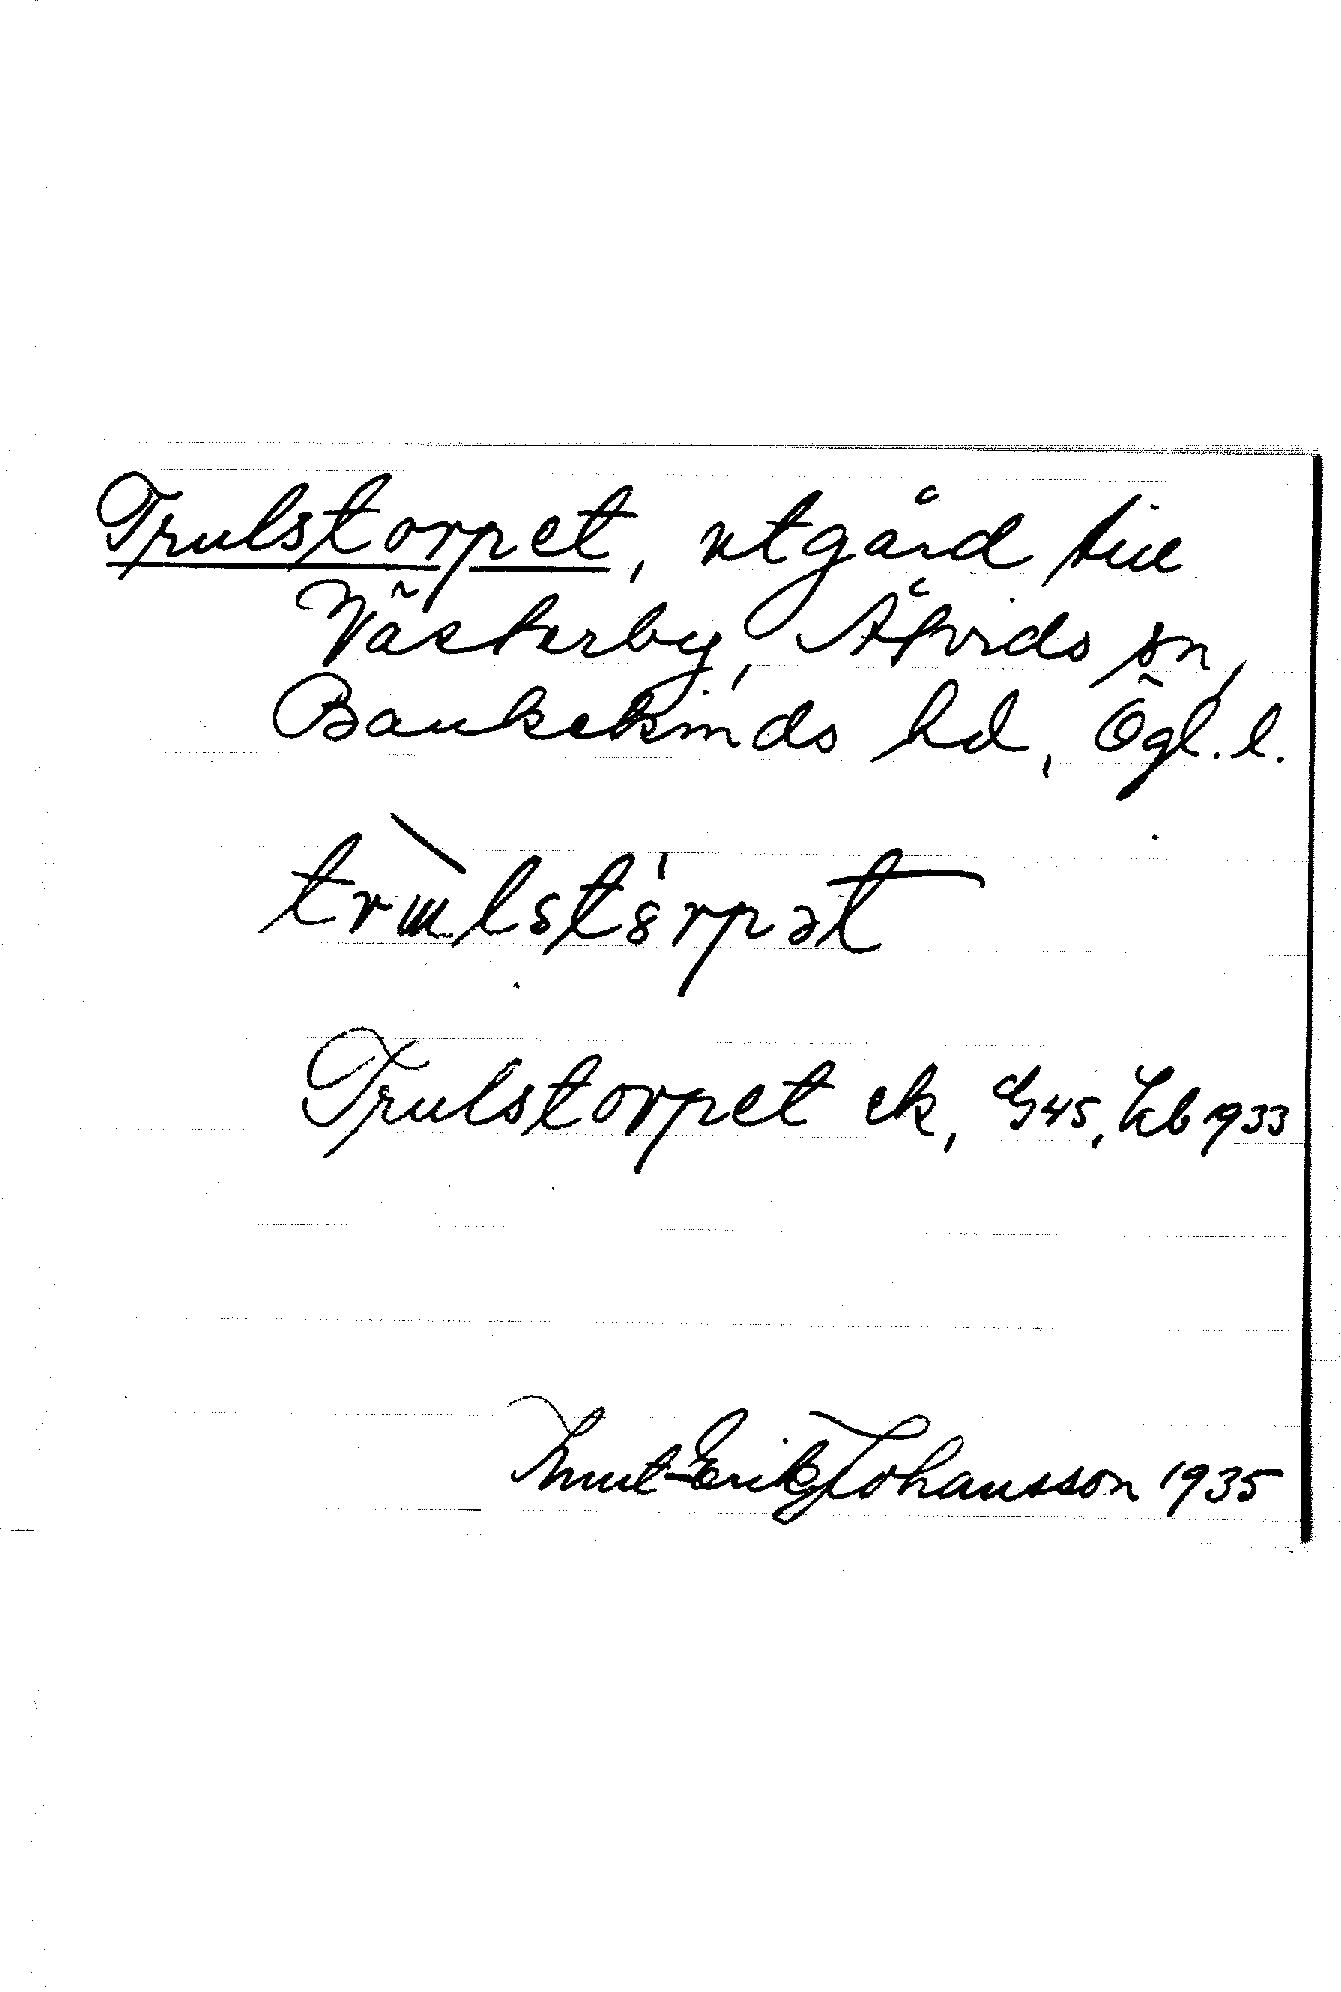 Trulstorpet, utgård till
Västerby, Åtvids sn,
Bankekinds hd, Ögl. l.
trɯ̀lst8́rpət
Trulstorpet ek, G45, kb 1933
Knut-Erik Johansson 1935